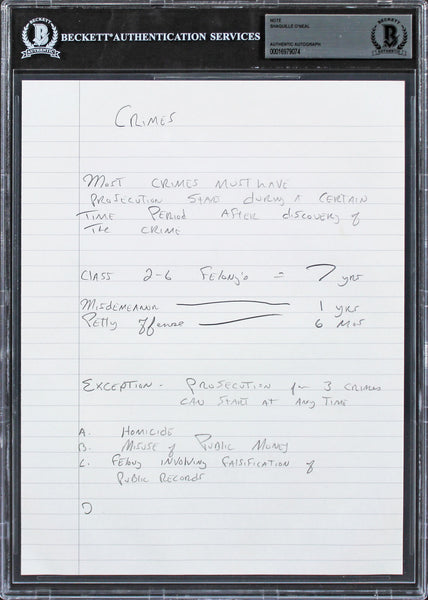 BECKETT AUTHENTICATION SERVICES
NOTE
SHAQUILLE O'NEAL
AUTHENTIC AUTOGRAPH
00016979074
CRIMES
MOST CRIMES MUST HAVE
PROSECUTION START DURING A CERTAIN
TIME PERIOD AFTER discovery of
The CRIME
CLASS 2-6 Felony's = 7 yrs
MISDEMEANOR 1 yrs
Petty offense 6 Mos
EXCEPTION - PROSECUTION for 3 CRIMES
CAN START AT ANY TIME
A. HOMICIDE
B. MISUSE of PUBLIC MONEY
C. Felony INVOLVING FALSIFICATION of
PUBLIC RECORDS
D